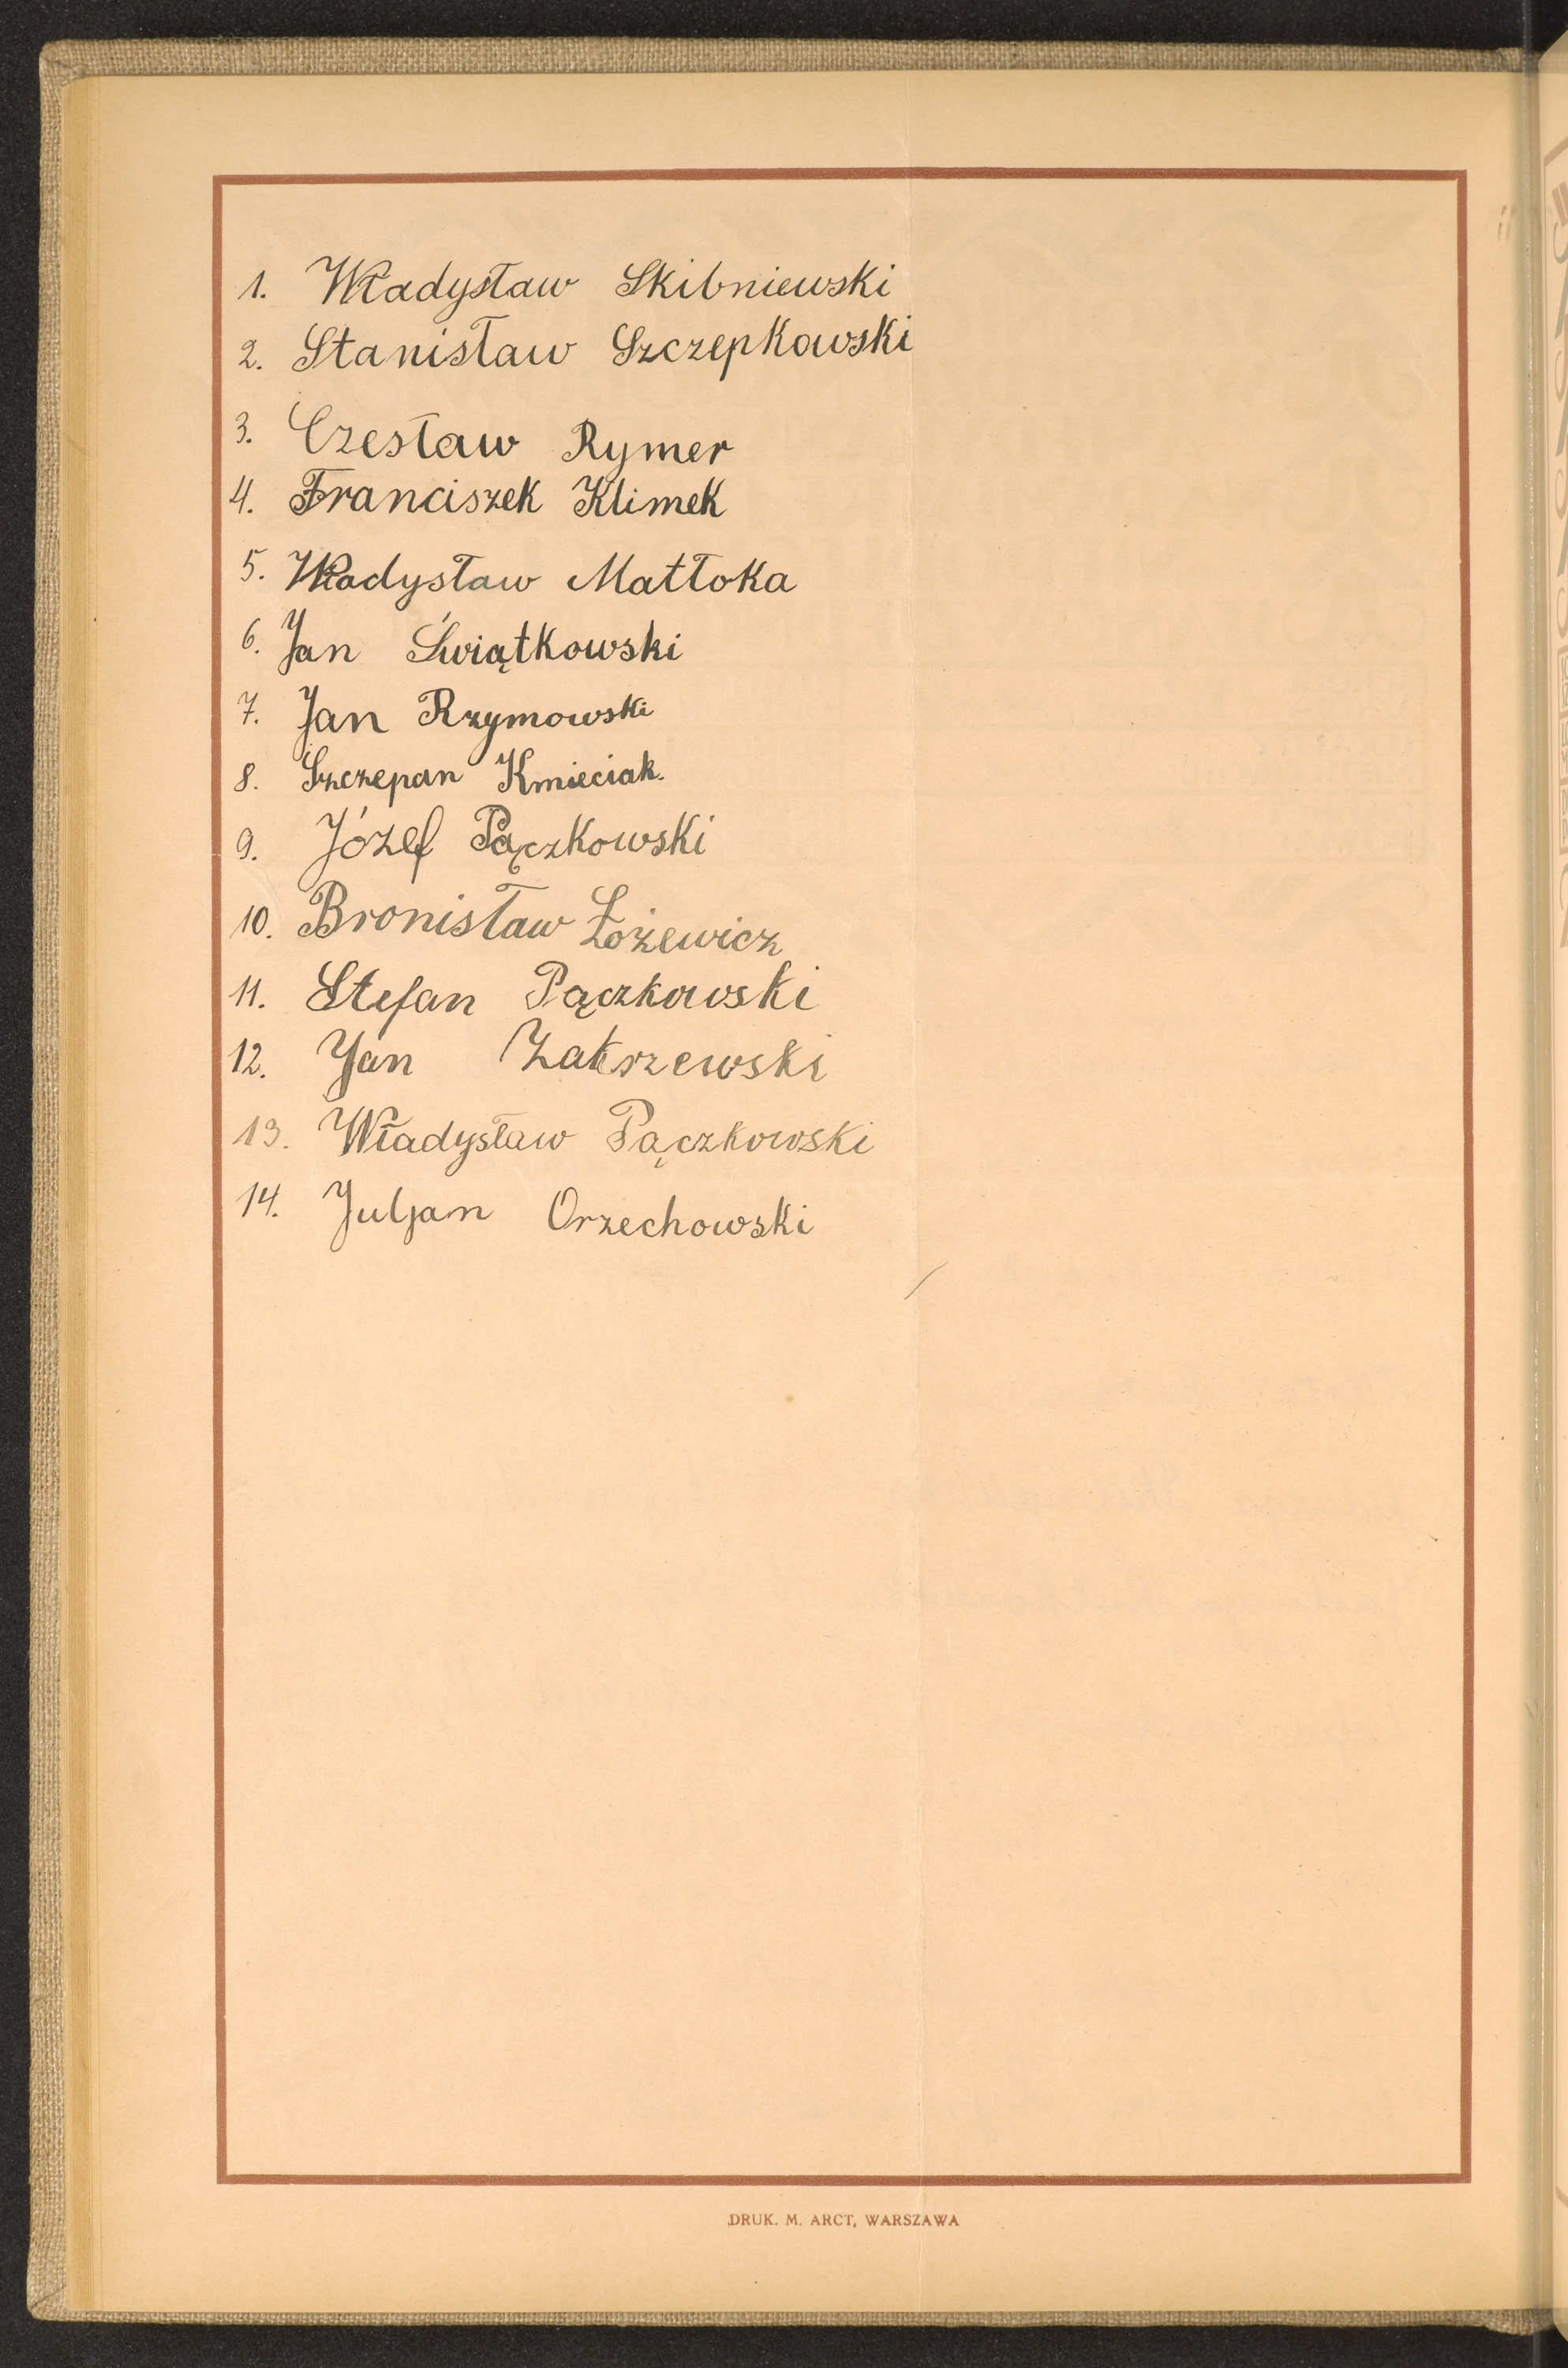 1. Władysław Skibniewski
2. Stanisław Szczepkowski
3. Czesław Rymer
4. Franciszek Klimek
5. Władysław Matłoka
6. Jan Świątkowski
7. Jan Rzymowski
8. Szczepan Kmieciak.
9. Józef Pączkowski
10. Bronisław Łożewicz
11. Stefan Pączkowski
12. Jan Zakrzewski
13. Władysław Pączkowski
14. Juljan Orzechowski
DRUK. M. ARCT, WARSZAWA